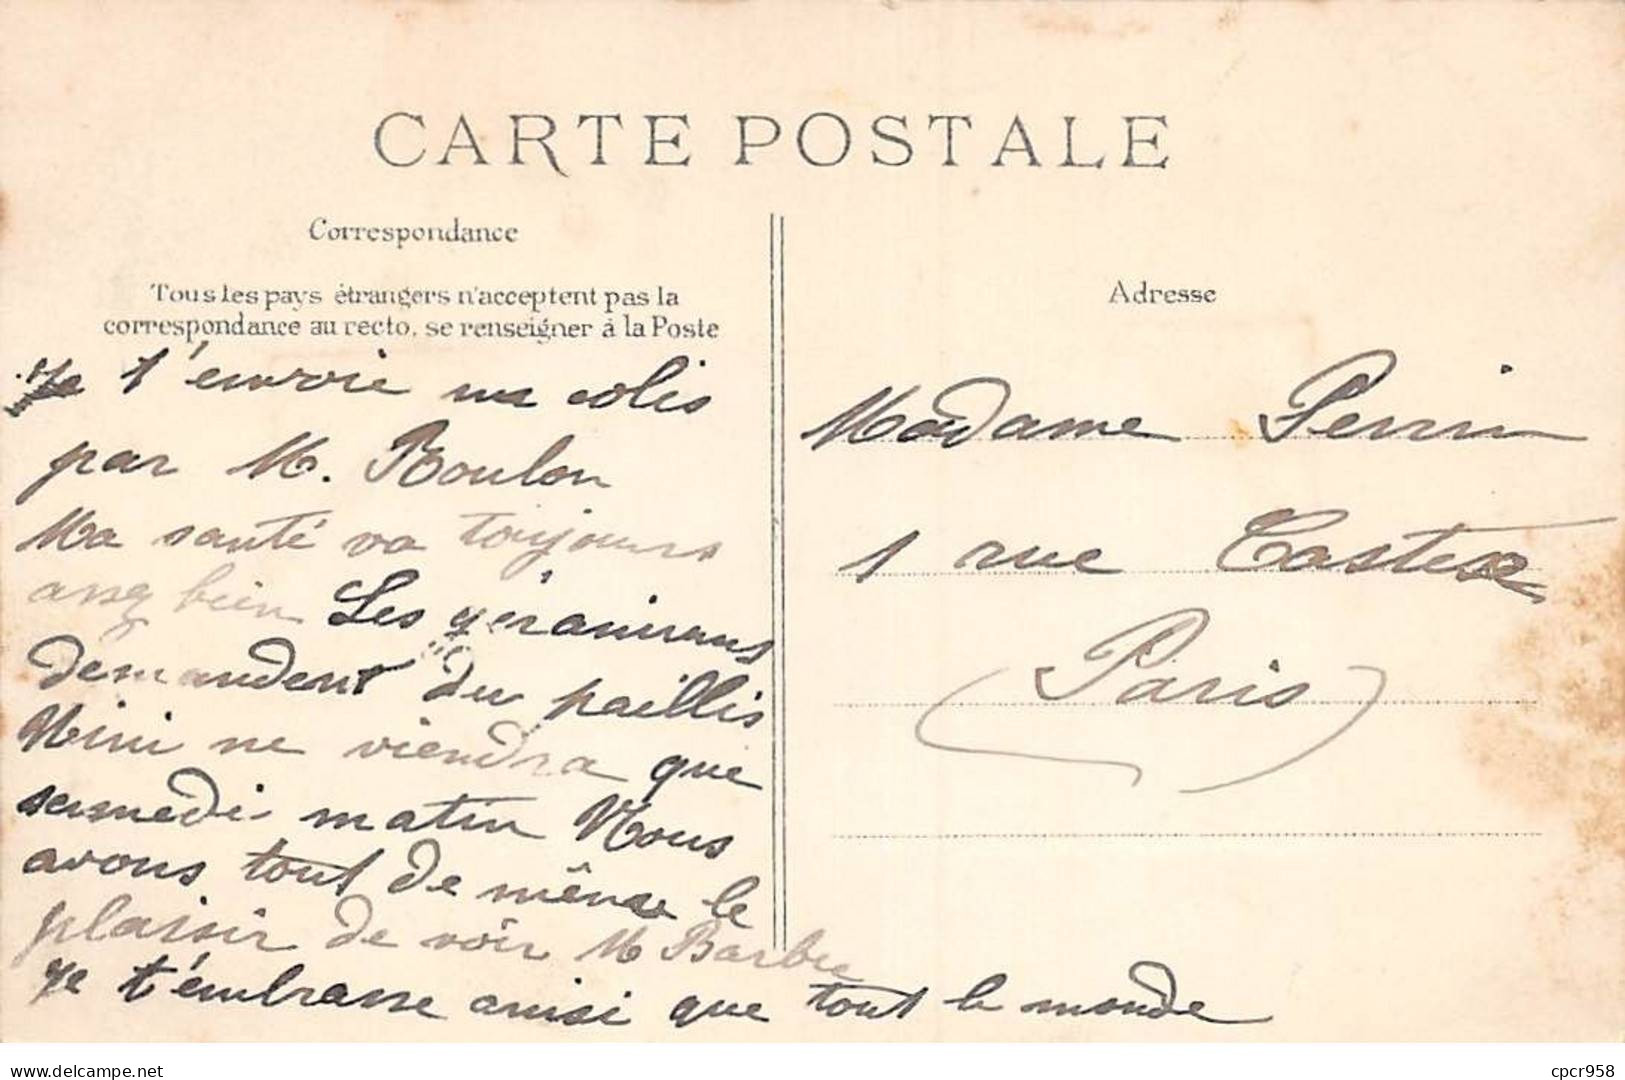 CARTE POSTALE
Correspondance
Tous les pays étrangers n'acceptent pas la
correspondance au recto, se renseigner à la Poste
Adresse
Je t'envoie un colis
par M. Boulon
Ma santé va toujours
assez bien Les géraniums
demandent du paillis
Nini ne viendra que
samedi matin Nous
avons tout de même le
plaisir de voir M Barbu
Je t'embrasse ainsi que tout le monde
Madame Perrin
1 rue Castex
Paris
delcampe.net
cpcr958